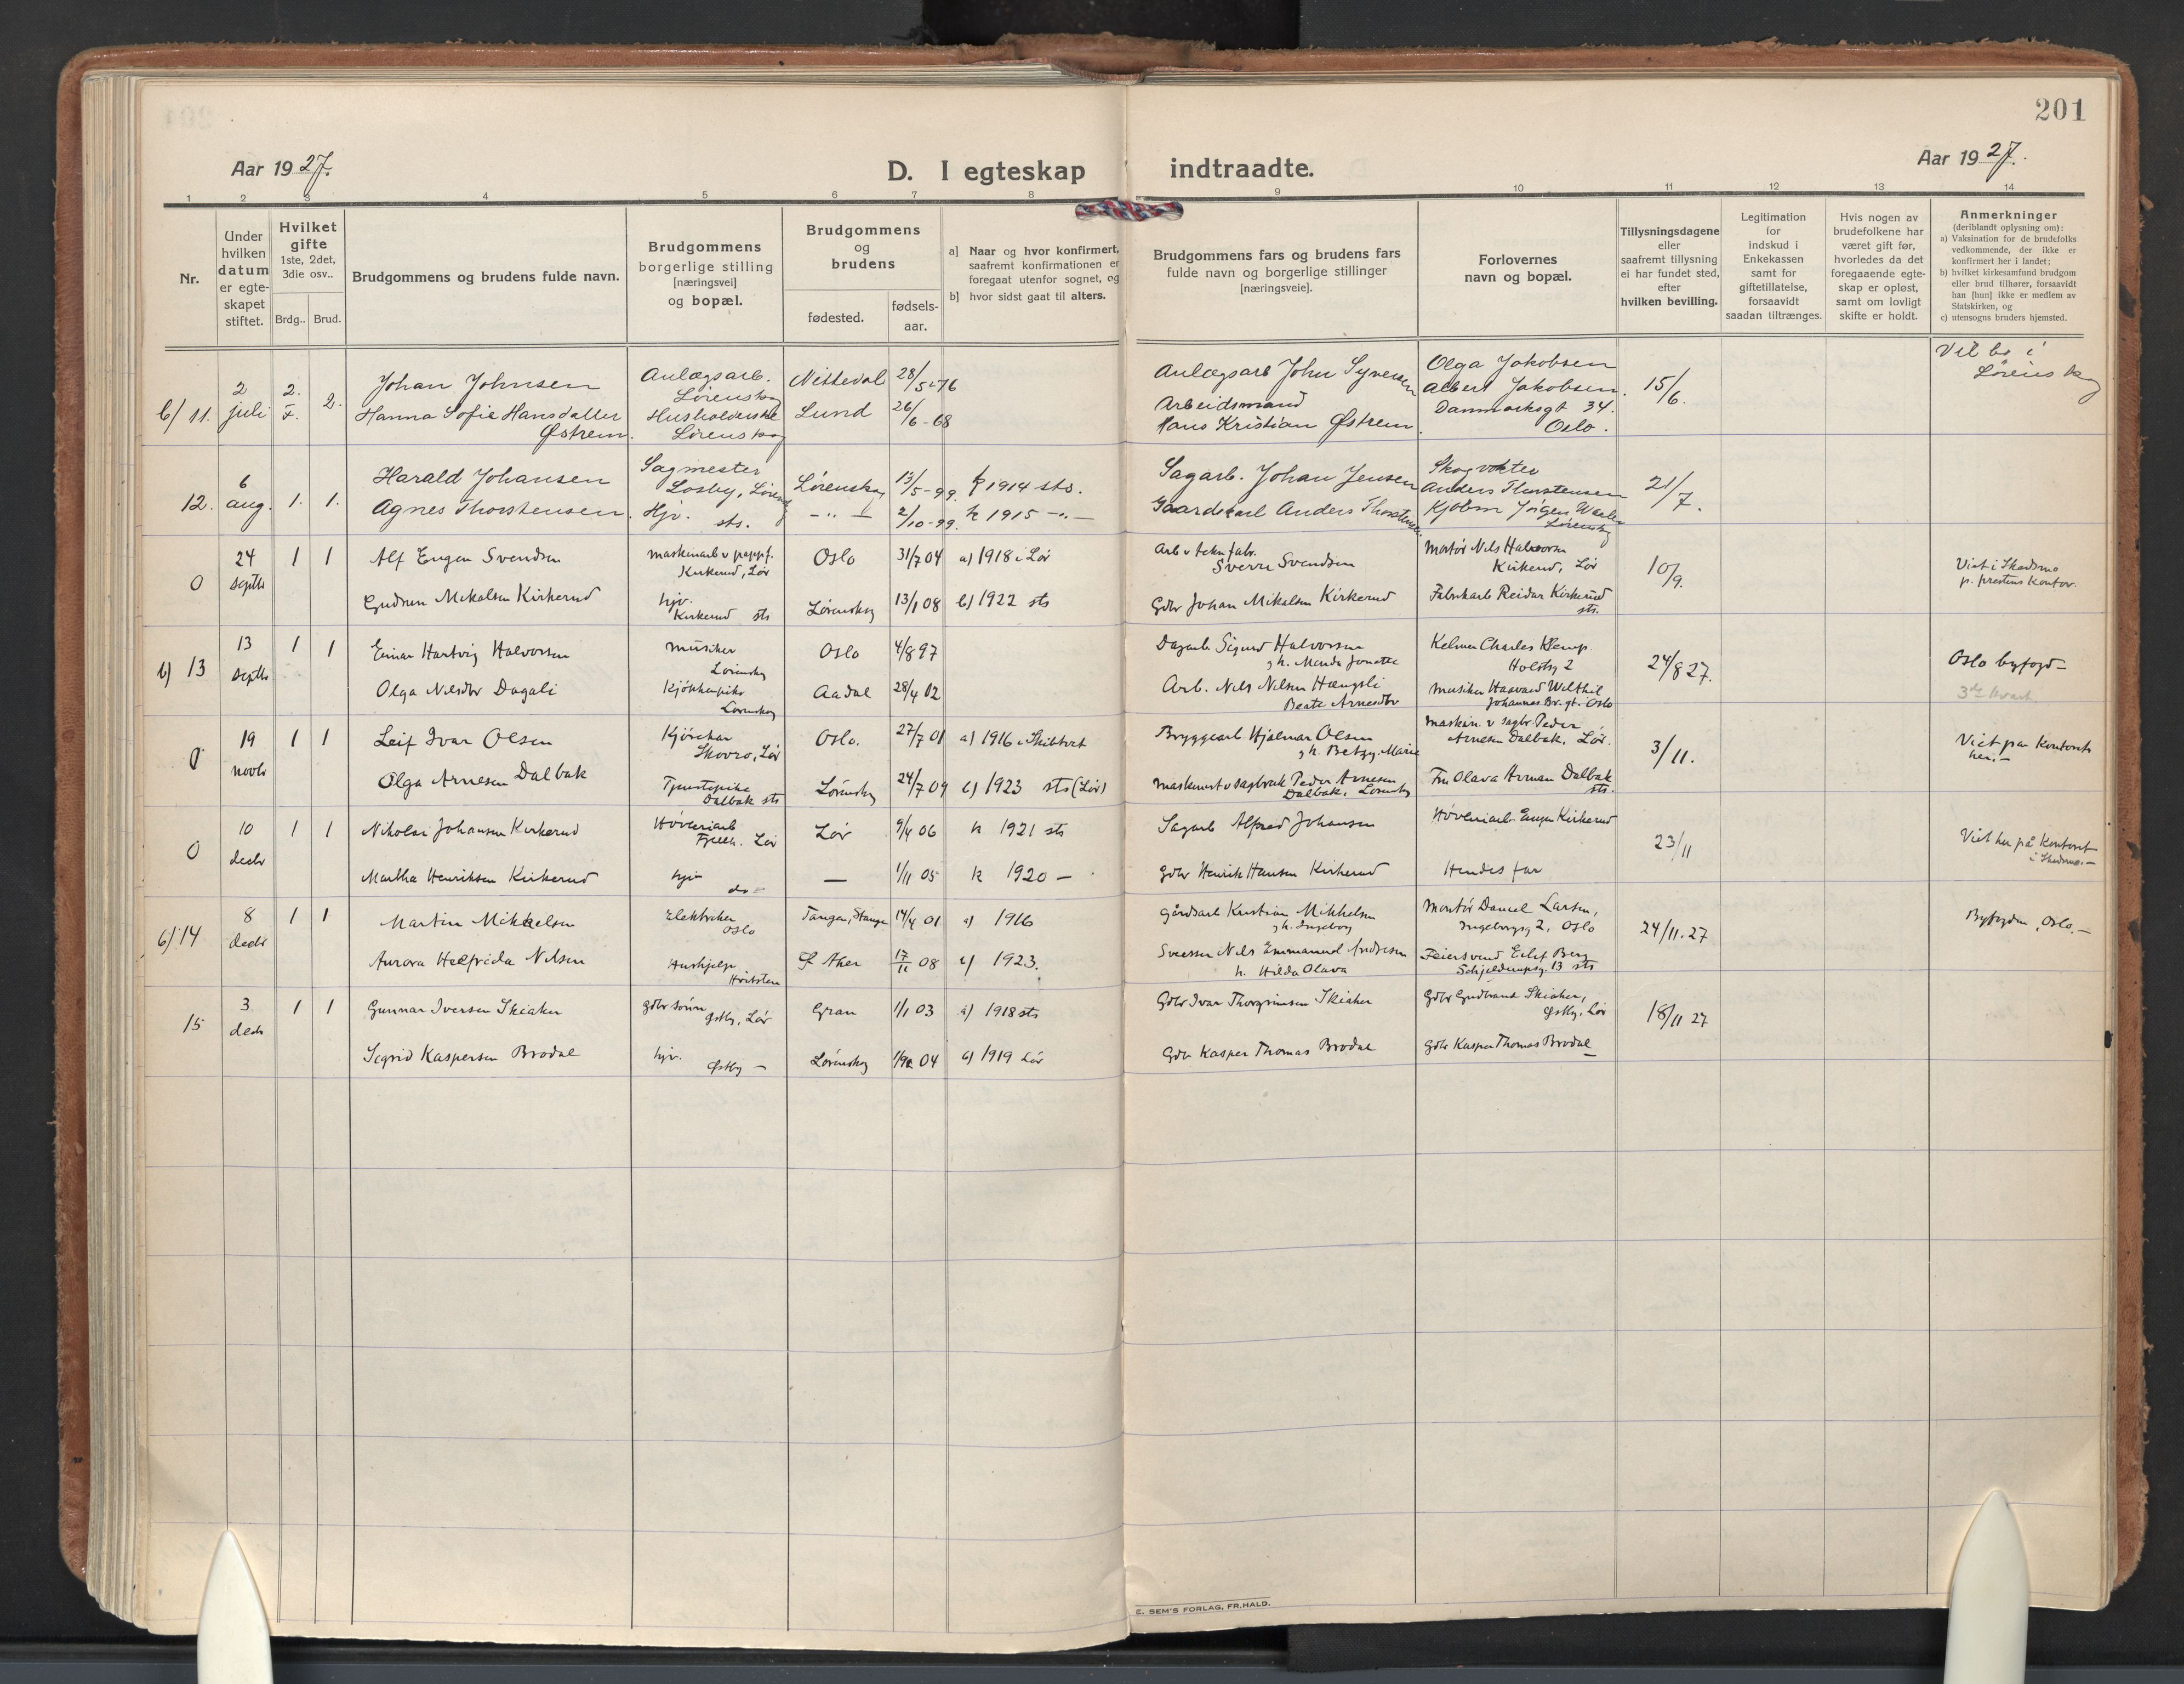 201
Aar 1927.
D. I egteskap indtraadte.
Aar 1927.
1 2 3 4 5 6 7 8 9 10 11 12 13 14
Nr.
Under hvilken datum er egte-skapet stiftet.
Hvilket gifte 1ste, 2det, 3die osv..
Brdg.. Brud.
Brudgommens og brudens fulde navn.
Brudgommens borgerlige stilling [næringsvei] og bopæl.
Brudgommens og brudens
fødested.
fødsels-aar.
a] Naar og hvor konfirmert, saafremt konfirmationen er foregaat utenfor sognet, og
b] hvor sidst gaat til alters.
Brudgommens fars og brudens fars fulde navn og borgerlige stillinger [næringsveie].
Forlovernes navn og bopæl.
Tillysningsdagene eller saafremt tillysning ei har fundet sted, efter hvilken bevilling.
Legitimation for indskud i Enkekassen samt for giftetillatelse, forsaavidt saadan tiltrænges.
Hvis nogen av brudefolkene har været gift før, hvorledes da det foregaaende egte-skap er opløst, samt om lovligt skifte er holdt.
Anmerkninger (deriblandt oplysning om):
a) Vaksination for de brudefolks vedkommende, der ikke er konfirmert her i landet;
b) hvilket kirkesamfund brudgom eller brud tilhører, forsaavidt han [hun] ikke er medlem av Statskirken, og
c) utensogns bruders hjemsted.
b/ 11. 2 juli 2. F. 2.
Johan Johnsen Anlægsarb. Lørenskog Nittedal 28/5-76
Anlægsarb John Syversen Olga Jakobsen
Hanna Sofie Hansdatter Østrem. Husholderske Lørenskog Lund 26/6-68
Arbeidsmand Hans Kristian Østrem. Albert Jakobsen. Danmarksgt 34. Oslo.
15/6.
Vil bo i Lørenskog
12. 6 aug. 1. 1.
Harald Johansen Sagmester Losby, Lørensk Lørenskog 13/5-99. k 1914 sts.
Sagarb. Johan Jensen Skogvokter Anders Thorstensen
Agnes Thorstensen. Hjv. sts. -"- 2/10-99. k 1915 -"-
Gaardskarl Anders Thorstensen. Kjøbm Jørgen Waaler Lørenskog
21/7.
0 24 septbr 1 1
Alf Eugen Svendsen Maskinarb v pappf. Kirkerud, Lør Oslo 31/7 04 a) 1918 i Lør
Arb v tekn fabr. Sverre Svendsen Montør Nils Halvorsen Kirkerud, Lør
Gudrun Mikalsen Kirkerud hjv. Kirkerud sts Lørenskog 13/1 08 b) 1922 sts
Gdbr Johan Mikalsen Kirkerud Fabrikarb Reidar Kirkerud sts.
10/9.
Viet i Skedsmo p. prestens kontor.
b) 13 13 septbr 1 1
Einar Hartvig Halvorsen Musiker Lørenskog Oslo 4/8 97
Dagarb. Sigurd Halvorsen Kelner Charles Klemp Holstsg 2
Olga Nilsdtr Dagali Kjøkkenpike Lørenskog Aadal 28/4 02
Arb. Nils Nilsen Hængsli Beate Arnesdtr Musiker Johannes Br. gt. Oslo
24/8 27.
Oslo byfogd-
0 19 novbr 1 1
Leif Ivar Olsen Kjørekar Skovro, Lør Oslo. 27/7 01 a) 1916 i
Bryggearb Hjalmar Olsen Maskin. v sagbr. Peder Arnesen Dalbak, Lør.
Olga Arnesen Dalbak Tjenestepike Dalbak sts Lørenskog 24/7 09 b) 1923 sts (Lør)
Maskinist v sagbruk Peder Arnesen Dalbak, Lørenskog Fru Olava Dalbak sts.
3/11.
Viet paa Kontoret her.-
0 10 decbr 1 1
Nikolai Johansen Kirkerud Høvleriarb Lør Lør 9/4 06 k 1921 sts
Sagarb Alfred Johansen Høvleriarb Eugen Kirkerud
Martha Henriksen Kirkerud hjv do - 1/11 05 k 1920 -
Gdbr Henrik Hansen Kirkerud Hendes far
23/11
Viet her på Kontoret i Skedsmo.-
b) 14 8 decbr 1 1
Martin Mikkelsen Elektriker Oslo Tangen, Stange 14/4 01 a) 1916
Gårdsarb Kristian Mikkelsen g h. Ingeborg Montør Daniel Larsen, Ingeborgsg 2, Oslo
Aurora Helfrida Nilsen Hushjelp Ø Aker 17/11 08 b) 1923.
Nils Emmanuel Andresen h. Hilda Olava Feiersvend Eilif Berg Schjelderupsg. 13 sts
24/11. 27
Byfogden, Oslo.-
15 3 decbr 1 1
Gunnar Iversen Skiaker Gdbr sønn Østby, Lør Gran 1/1 03 a) 1918 sts
Gdbr Ivar Thorgrimsen Skiaker Gdbr Gudbrand Skiaker, Østby, Lør
Sigrid Kaspersen Brodal hjv. Østby - Lørenskog 04 b) 1919 Lør
Gdbr Kasper Thomas Brodal Gdbr Kasper Thomas Brodal
18/11 27
E. SEM'S FORLAG, FR.HALD.